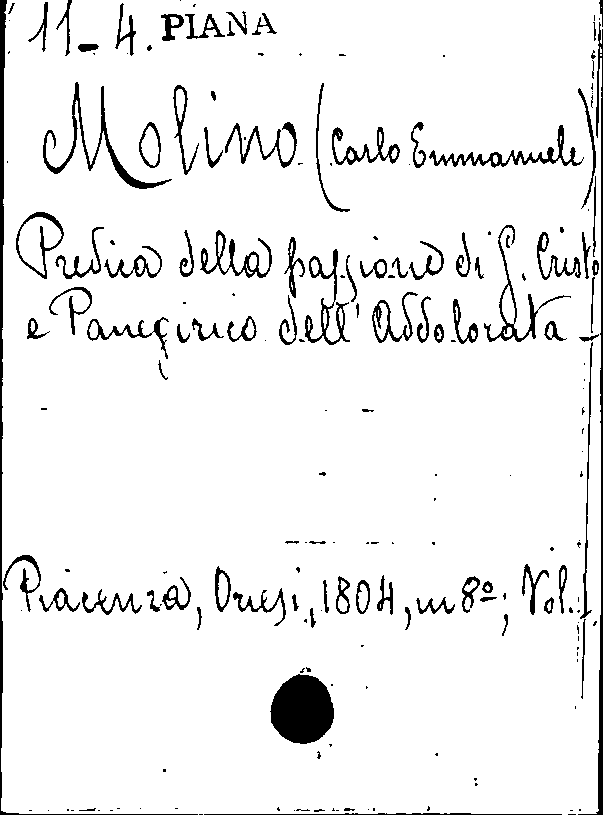 11-4. PIANA
Molino (Carlo Emmanuele)
Predica della passione di G. Cristo
e Panegirico dell'Addolorata -
Piacenza, Orcesi, 1804, in 8º; Vol. 1